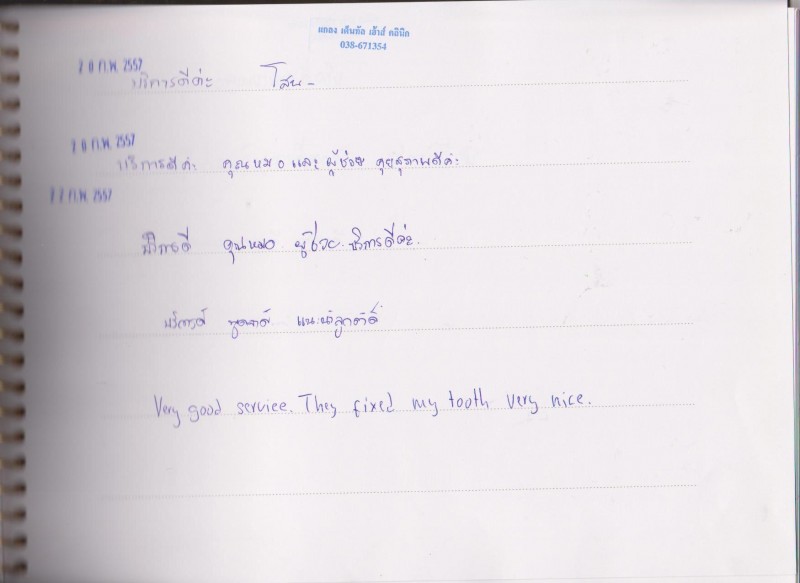 แกลง เด็นทัล เฮ้าส์ คลินิก
038-671354
2 0 ก.พ. 2557
บริการดีค่ะ
2 0 ก.พ. 2557
บริการดีค่ะ คุณหมอและผู้ช่วย คุยสุภาพดีค่ะ
2 2 ก.พ. 2557
บริการดี คุณหมอ ผู้ช่วย บริการดีค่ะ.
บริการดี พูดจาดี แนะนำลูกค้าดี
Very good service. They fixed my tooth very nice.